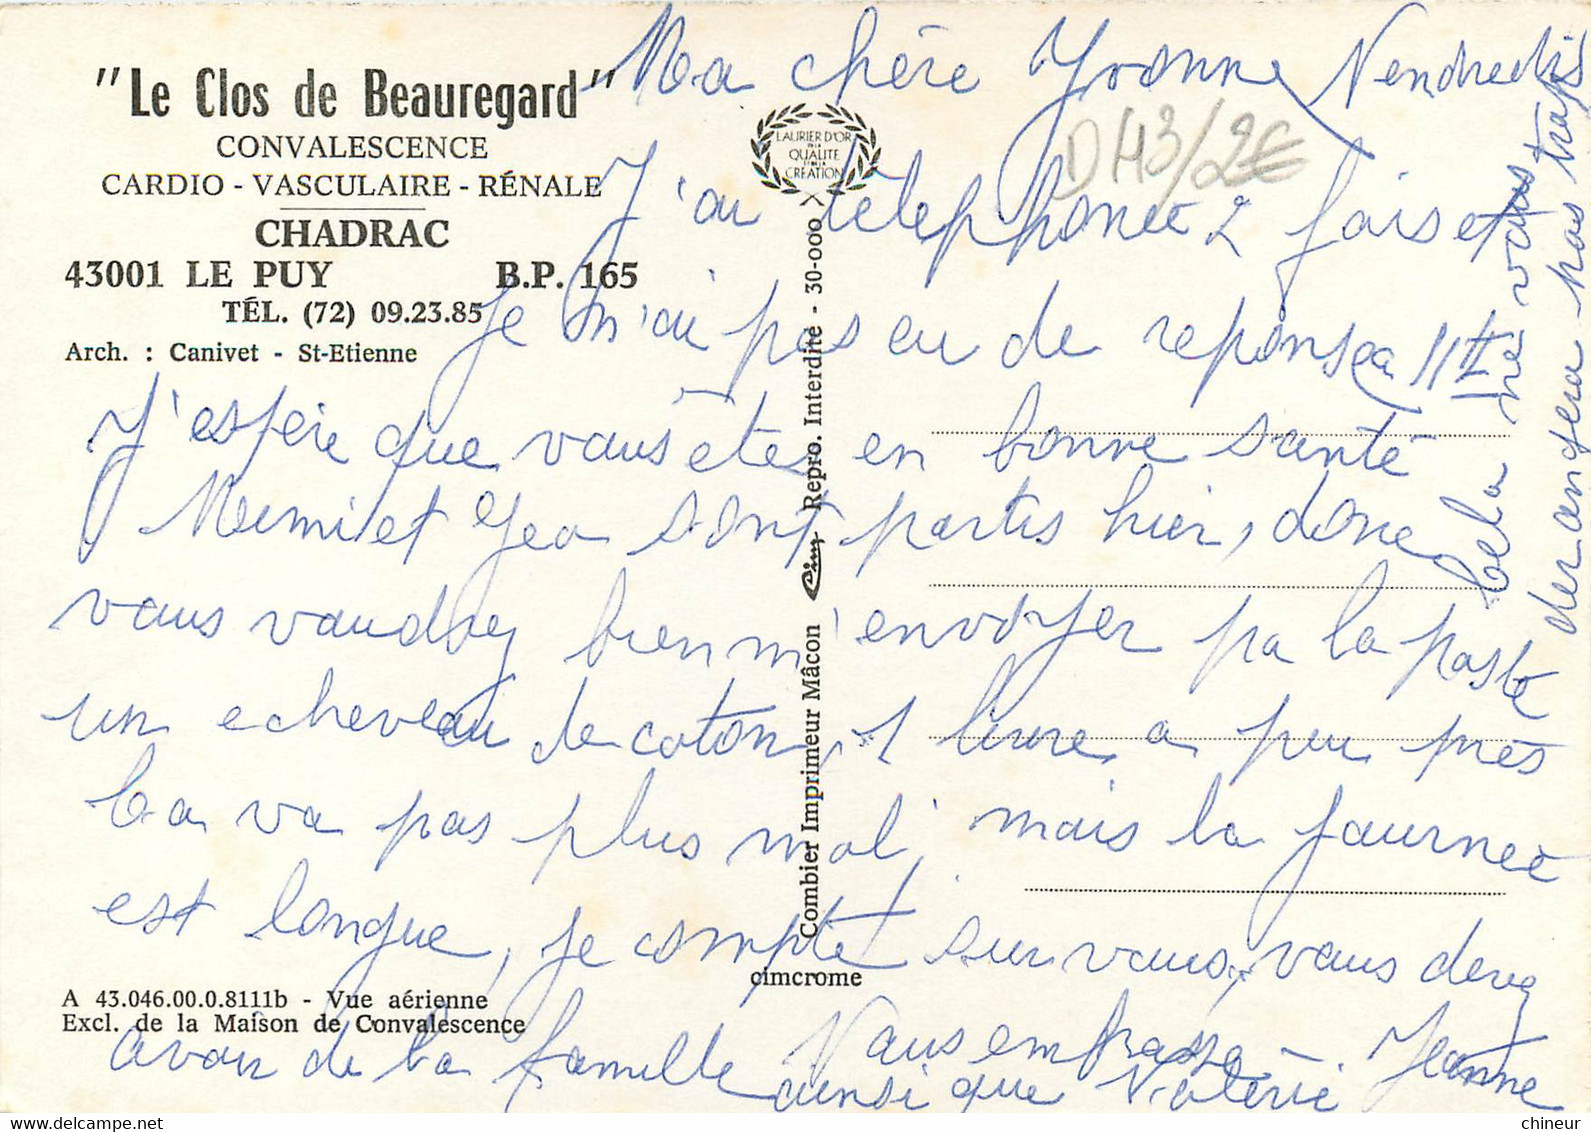 "Le Clos de Beauregard"
CONVALESCENCE
CARDIO - VASCULAIRE - RÉNALE
CHADRAC
43001 LE PUY B.P. 165
TÉL. (72) 09.23.85
Arch. : Canivet - St-Etienne
LAURIER D'OR
DE LA
QUALITE
ET DE LA
CREATION
D43/2€
Combier Imprimeur Mâcon Cim Repro. Interdite - 30-000
cimcrome
A 43.046.00.0.8111b - Vue aérienne
Excl. de la Maison de Convalescence
Ma chère Yvonne Vendredi
J'ai téléphonée 2 fois et
Je n'ai pas eu de reponse a 11H
J'espère que vous êtes en bonne santé
Mimi et Geo sont partis hier, donc
vous voudrez bien m'envoyer pa la poste
un echeveau de coton, 1 livre a peu près
Ca va pas plus mal, mais la journee
est longue, je compte sur vous, vous devez
avoir de la famille
Vous embrasse - Jeanne
ainsi que Valerie
cela ne vous
derangera pas trop
chineur